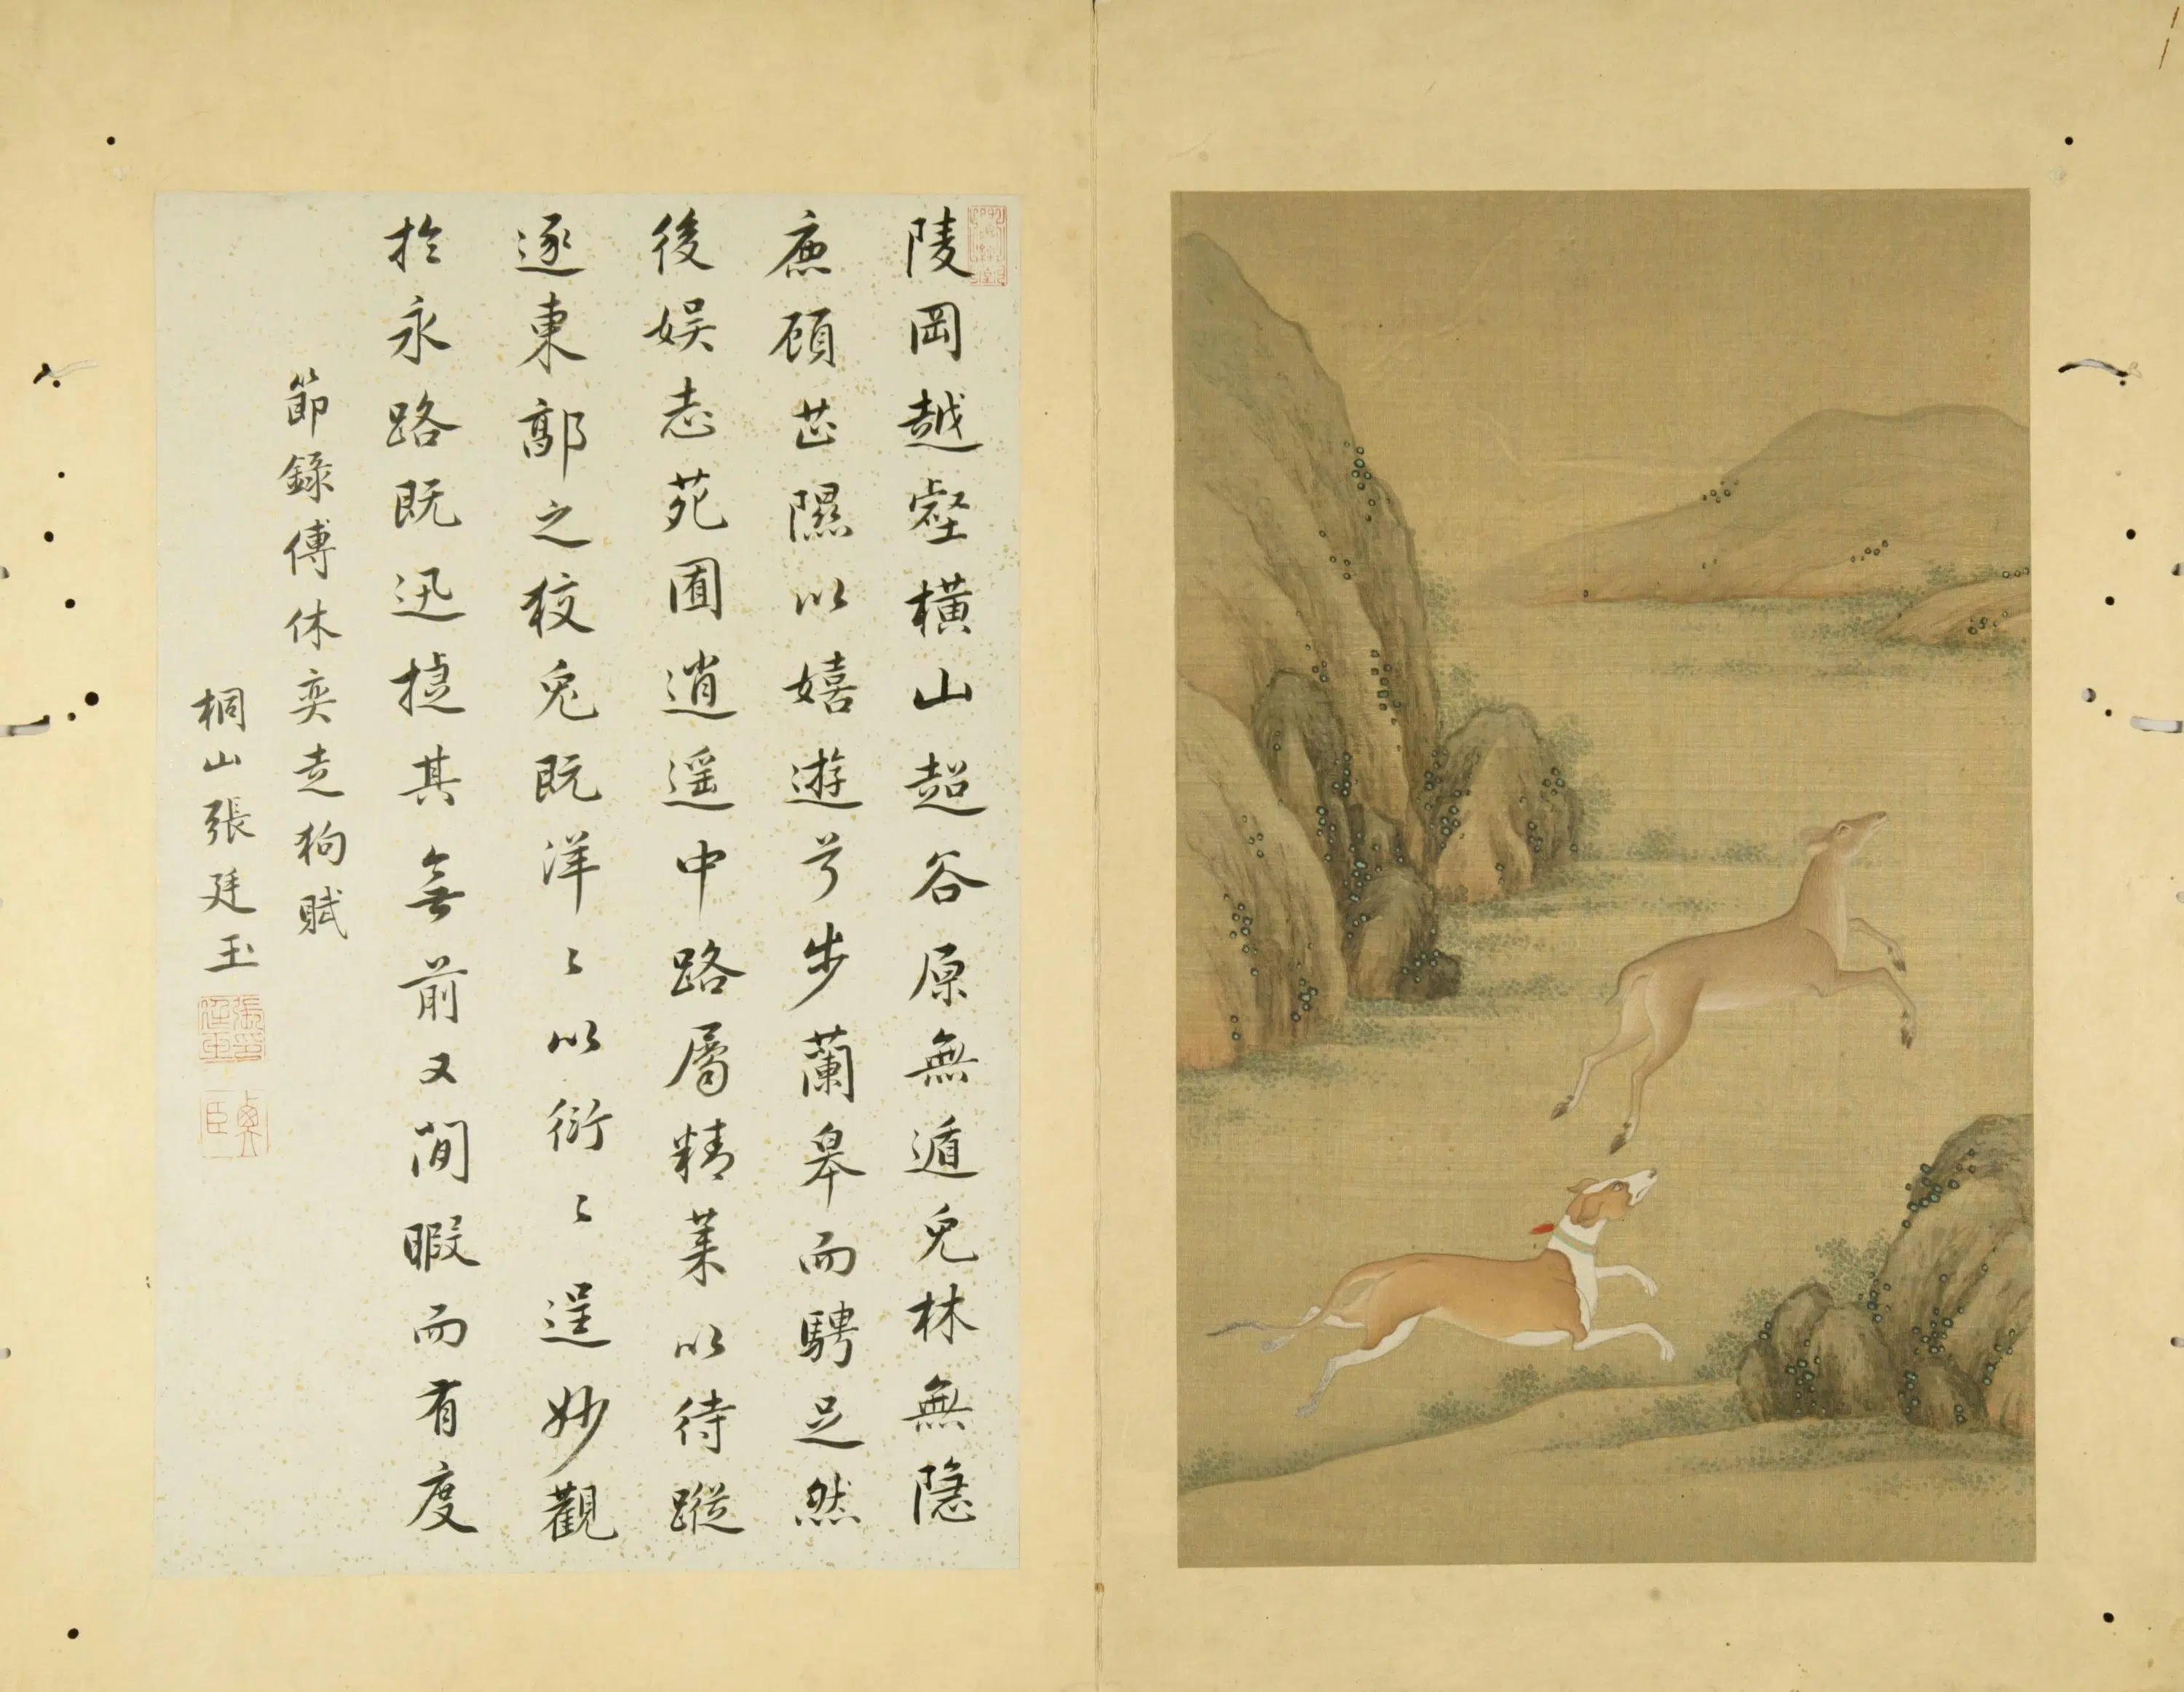 陵岡越壑橫山超谷原無遁兔林無隱
鹿顧芷隰以嬉遊兮步蘭皋而騁足然
後娱志苑囿逍遥中路屬精萊以待蹤
逐東郭之狡兔既洋〻以衍〻逞妙觀
於永路既迅捷其無前又閒暇而有度
節錄傅休奕走狗賦
桐山張廷玉
張廷玉印